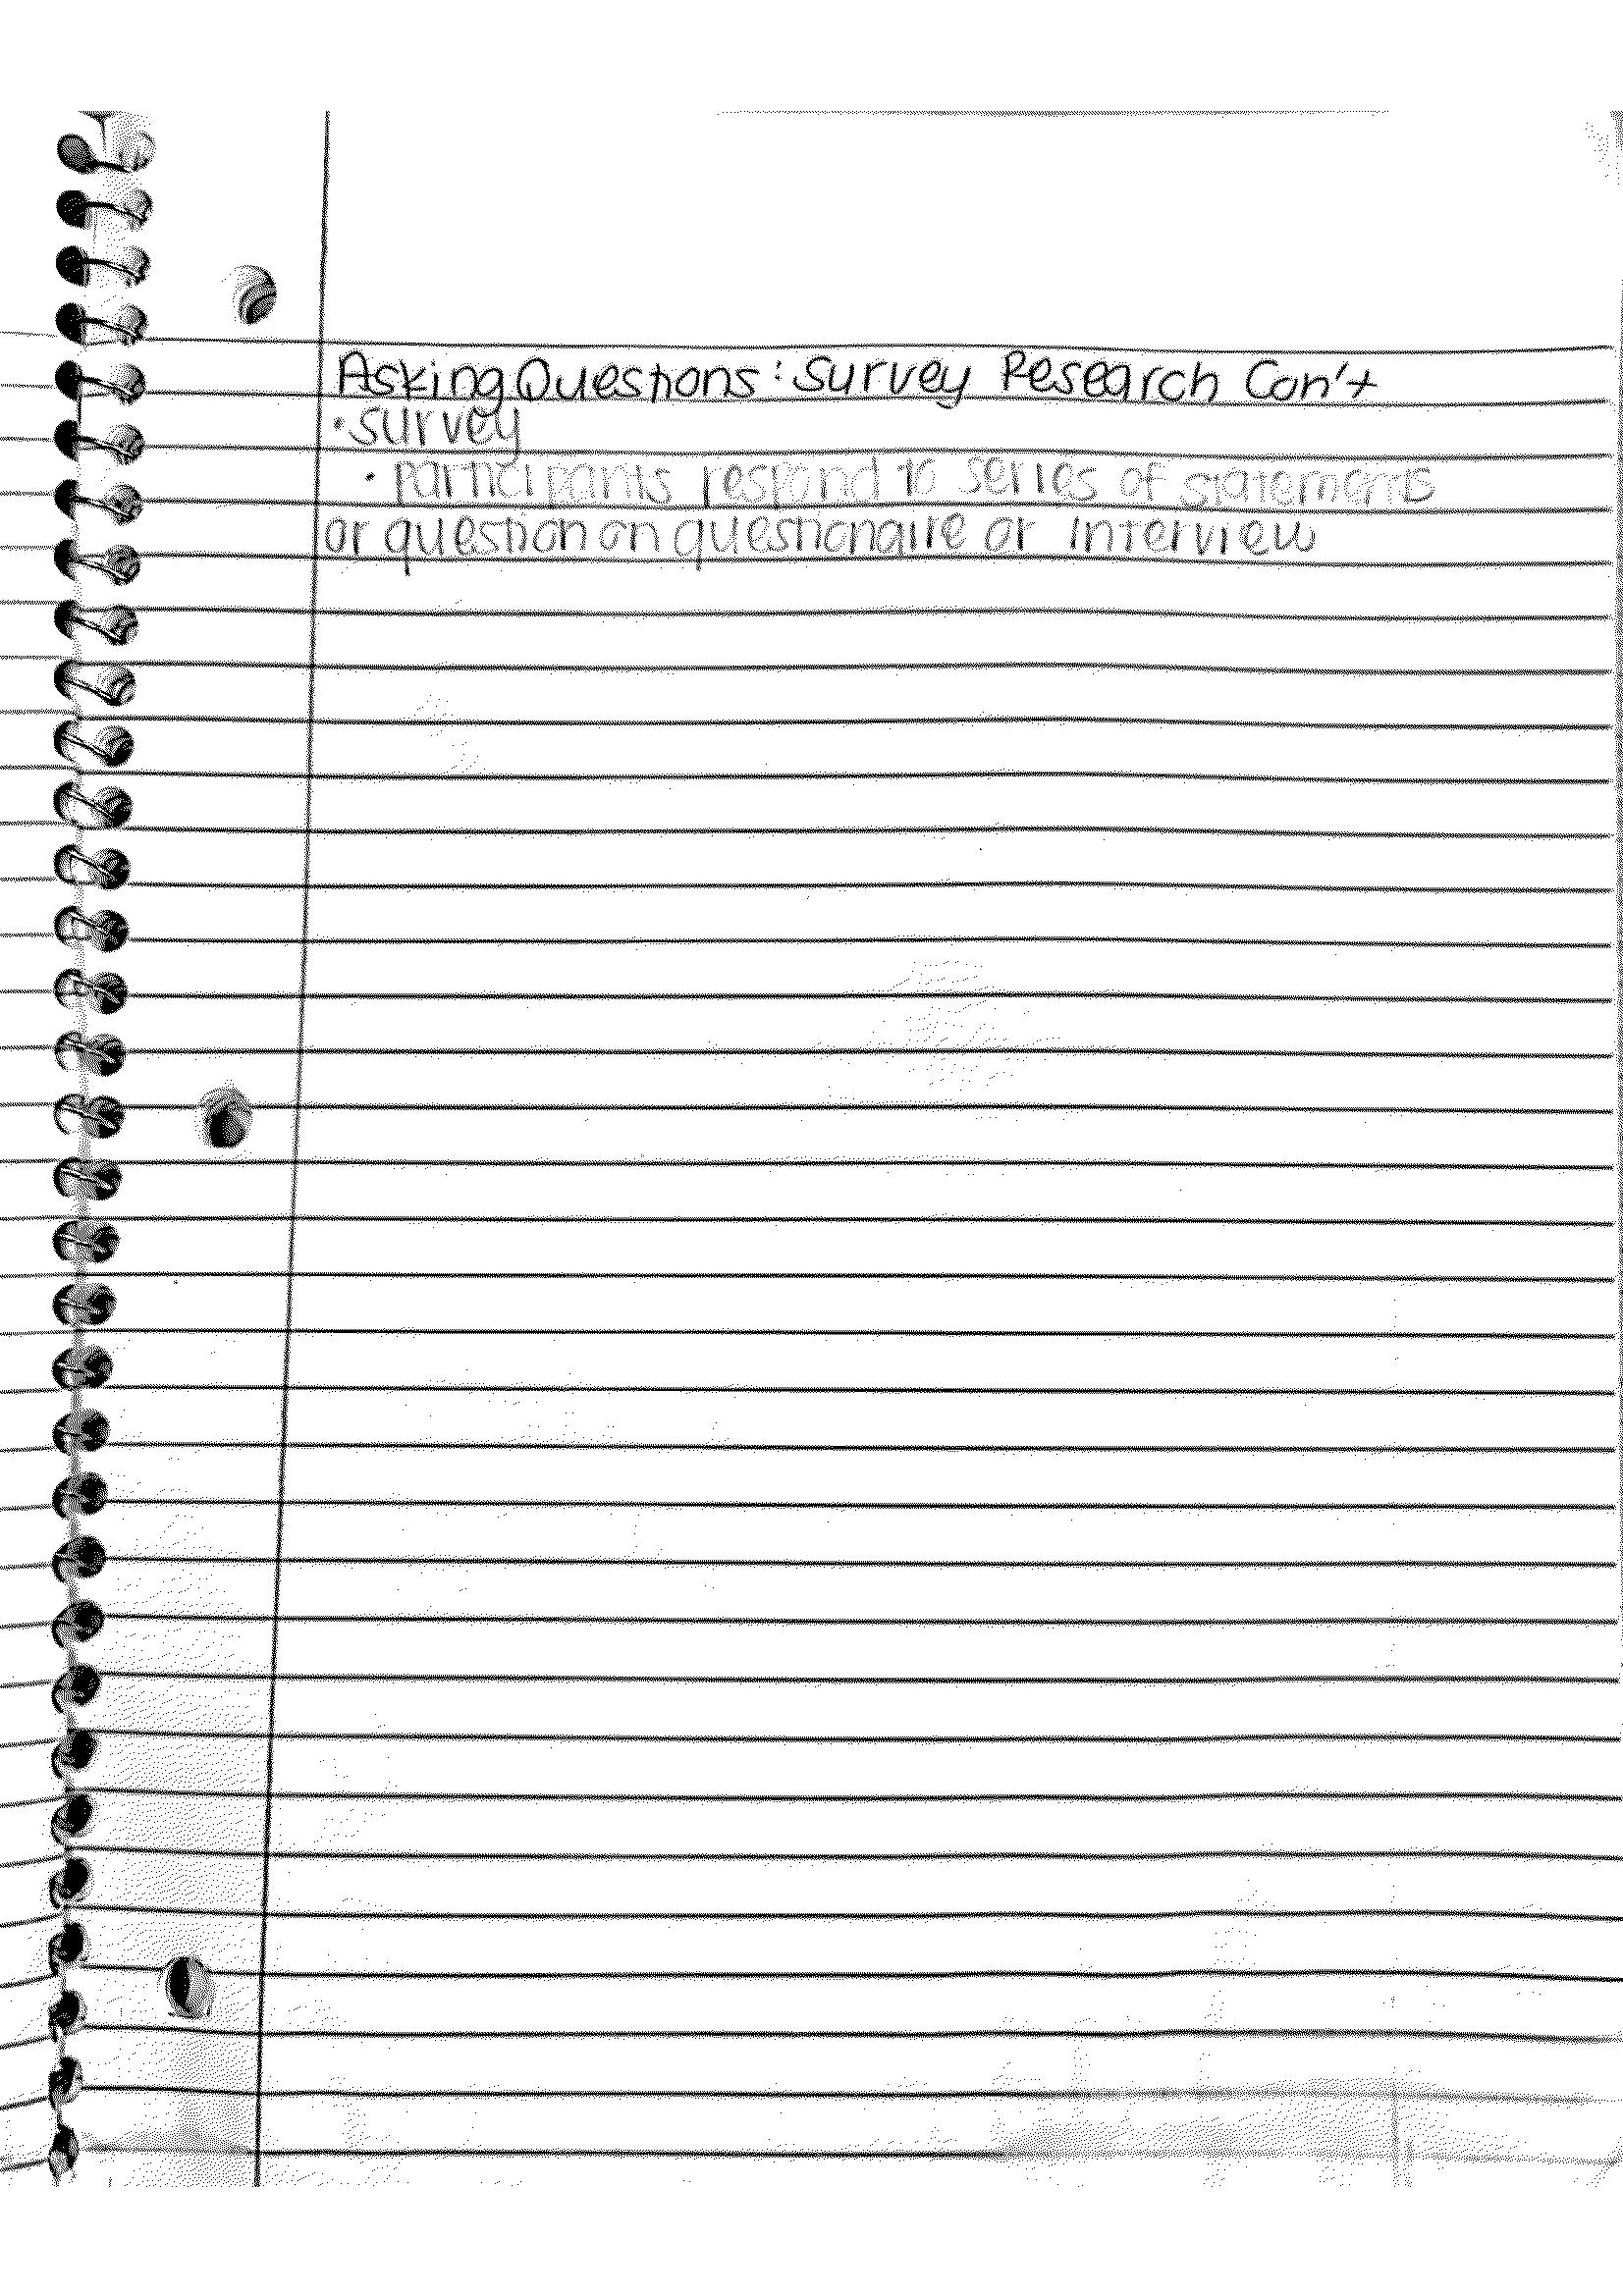 Asking Questions: Survey Research Con't
• Survey
• participants respond to series of statements
or question on questionaire or interview